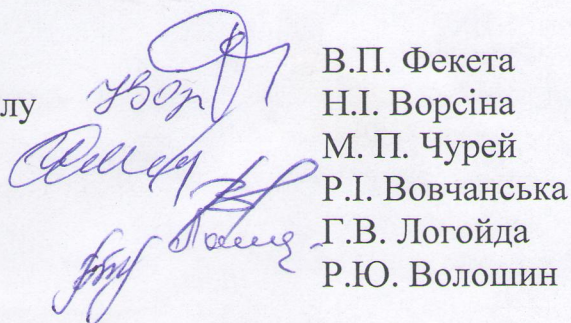 В.П. Фекета
лу Н.І. Ворсіна
М. П. Чурей
Р.І. Вовчанська
Г.В. Логойда
Р.Ю. Волошин